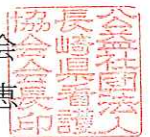 公益社団法人
長崎県看護
協会会長印